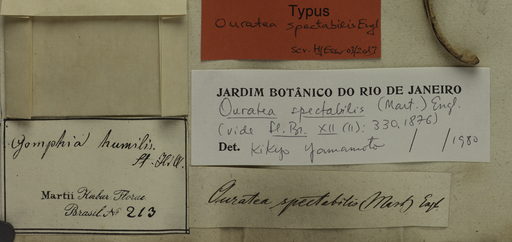 Typus
Ouratea spectabilis Engl
JARDIM BOTÂNICO DO RIO DE JANEIRO
Ouratea spectabilis (Mart.) Engl.
(vide Fl. Br. XII (II): 330, 1876)
Det. Kikyo Yamamoto / /1980
Gomphia humilis.
St. Hill.
Martii Herbar. Florae
Brasil. No 213
Ouratea spectabilis (Mart) Engl